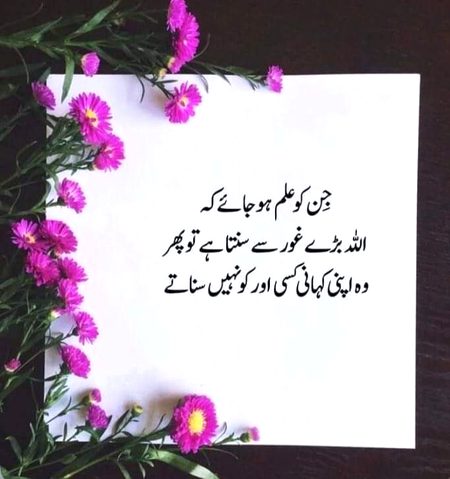 جِن کو علم ہو جائے کہ
اللہ بڑے غور سے سنتا ہے تو پھر
وہ اپنی کہانی کسی اور کو نہیں سناتے